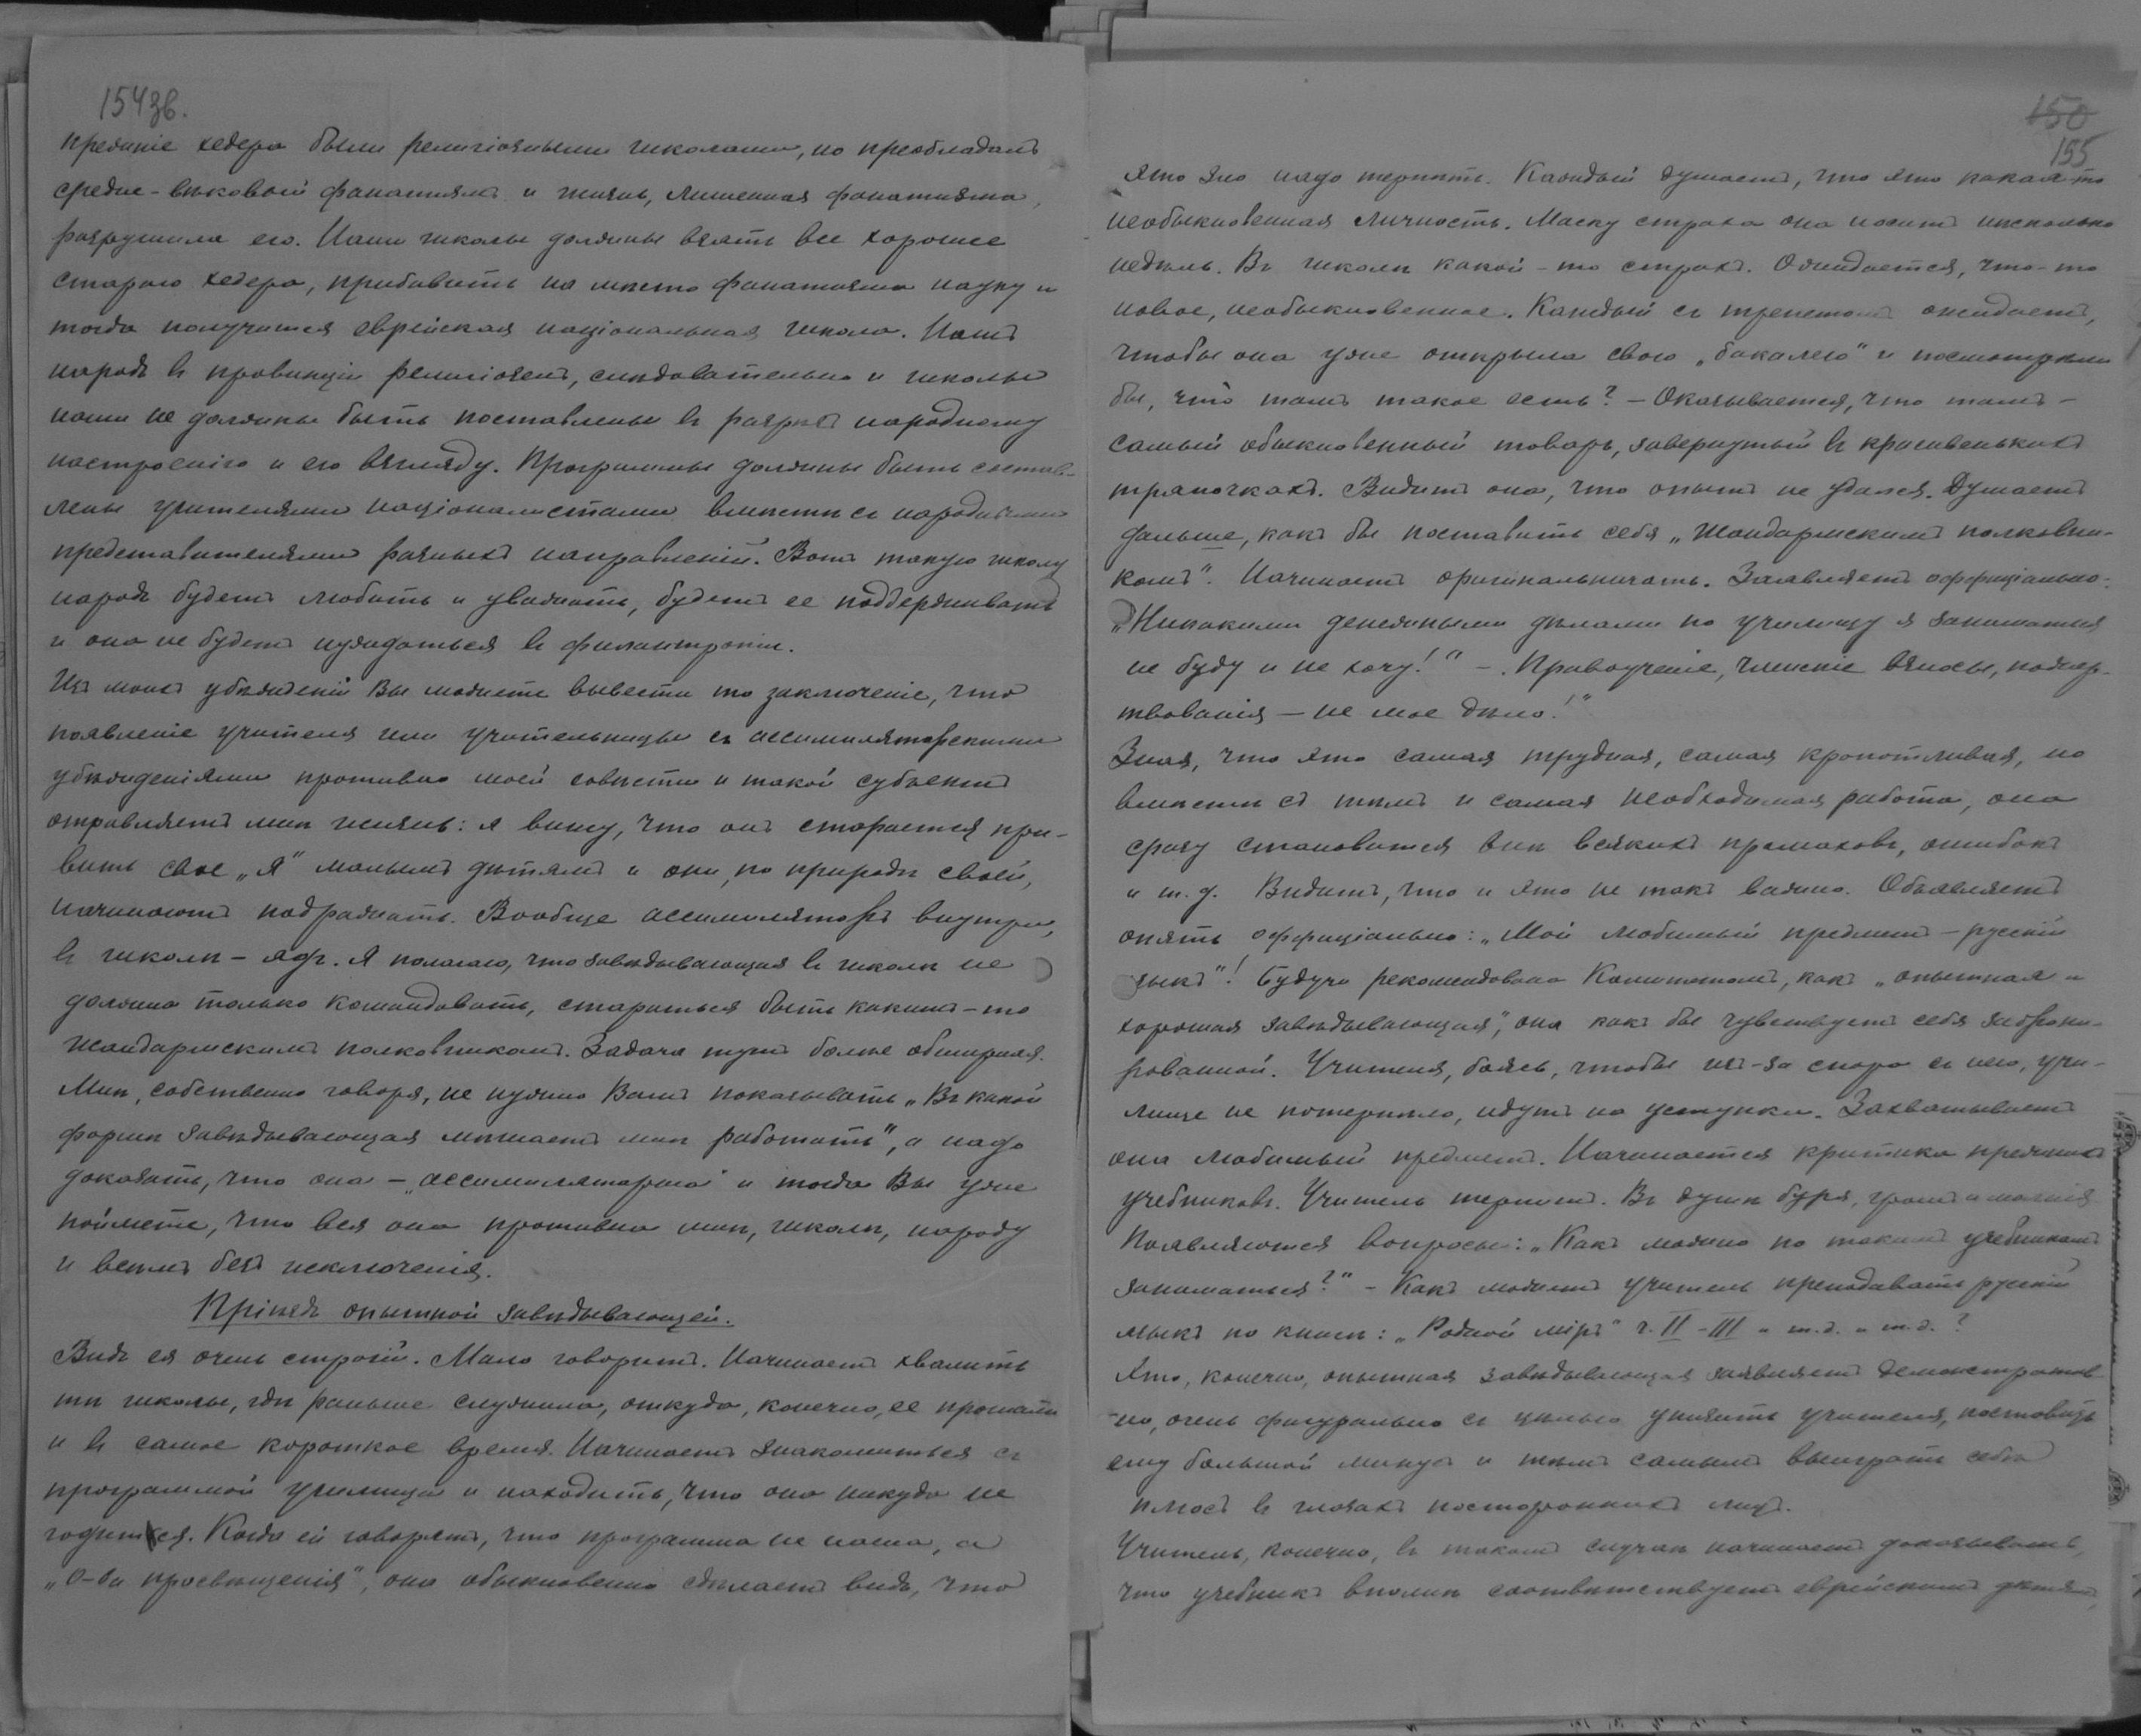 154зв.
прежніе хедера были религіозными школами, но преобладалъ
средне-вѣковый фанатизмъ и жизнь, лишенная фанатизма,
разрушила его. Наши школы должны взять все хорошее
стараго хедера, прибавить на мѣсто фанатизма науку и
тогда получится еврейская національная школа. Нашъ
народъ въ провинціи религіозенъ, слѣдовательно и школы
наши не должны быть поставлены въ разрѣзъ народному
настроенію и его взгляду. Программы должны быть состав-
лены учителями націоналистами вмѣстѣ съ народными
представителями разныхъ направленій. Вотъ такую школу
народъ будетъ любить и уважать, будетъ ее поддерживать
и она не будетъ нуждаться въ филантропіи.
Изъ моихъ убѣжденій Вы можете вывести то заключеніе, что
появленіе учителя или учительницы съ ассимиляторскими
убѣжденіями противно моей совѣсти и такой субъектъ
отравляетъ мнѣ жизнь: я вижу, что онъ старается при-
вить свое „я" малымъ дѣтямъ и они, по природѣ своей,
начинаютъ подражать. Вообще ассимиляторъ внутри,
въ школѣ – ядъ. Я полагаю, что завѣдывающая въ школѣ не
должна только командовать, стараться быть какимъ-то
жандармскимъ полковникомъ. Задача тутъ болѣе обширная.
Мнѣ, собственно говоря, не нужно Вамъ показывать „Въ какой
формѣ завѣдывающая мѣшаетъ мнѣ работать", а надо
доказать, что она – „ассимиляторша" и тогда Вы уже
поймете, что вся она противна мнѣ, школѣ, народу
и всѣмъ безъ исключенія.
Пріѣздъ опытной завѣдывающей.
Видъ ея очень строгій. Мало говоритъ. Начинаетъ хвалить
тѣ школы, гдѣ раньше служила, откуда, конечно, ее прогнали
и въ самое короткое время. Начинаетъ знакомиться съ
программой училища и находитъ, что она никуда не
годится. Когда ей говорятъ, что программа не наша, а
„О-ва просвѣщенія", она обыкновенно сдѣлаетъ видъ, что
150
155
это зло надо терпѣть. Каждый думаетъ, что это какая-то
необыкновенная личность. Маску страха она носитъ нѣсколько
недѣль. Въ школѣ какой-то страхъ. Ожидается, что-то
новое, необыкновенное. Каждый съ трепетомъ ожидаетъ,
чтобы она уже открыла свою „бакалею" и посмотрѣли
бы, что тамъ такое есть? – Оказывается, что тамъ –
самый обыкновенный товаръ, завернутый въ красивенькихъ
тряпочкахъ. Видитъ она, что опытъ не удался. Думаетъ
дальше, какъ бы поставить себя „жандармскимъ полковни-
комъ". Начинаетъ оригинальничать. Заявляетъ оффиціально:
„Никакими денежными дѣлами по училищу я заниматься
не буду и не хочу!" –. Правоученіе, членскіе взносы, пожер-
твованія – не мое дѣло!"
Зная, что это самая трудная, самая кропотливая, но
вмѣстѣ съ тѣмъ и самая необходимая работа, она
сразу становится внѣ всякихъ промаховъ, ошибокъ
и т. д. Видитъ, что и это не такъ важно. Объявляетъ
опять оффиціально: „Мой любимый предметъ – русскій
языкъ"! Будучи рекомендована Комитетомъ, какъ „опытная и
хорошая завѣдывающая", она какъ бы чувствуетъ себя заброни-
рованной. Учителя, боясь, чтобы изъ-за спора съ нею, учи-
лище не потерпѣло, идутъ на уступки. Захватываетъ
она любимый предметъ. Начинается критика прежнихъ
учебниковъ. Учитель терпитъ. Въ душѣ буря, громъ и молнія
Появляются вопросы: „Какъ можно по такимъ учебникамъ
заниматься?" – Какъ можетъ учитель преподавать русскій
языкъ по книгѣ: „Родной міръ" ч. II – III и т. д. и т. д. ?
Это, конечно, опытная завѣдывающая заявляетъ демонстратив-
но, очень фигурально съ цѣлью унизить учителя, поставить
ему большой минусъ и тѣмъ самымъ выиграть себѣ
плюсъ въ глазахъ постороннихъ лицъ.
Учитель, конечно, въ такомъ случаѣ начинаетъ доказывать,
что учебникъ вполнѣ соотвѣтствуетъ еврейскимъ дѣтямъ,